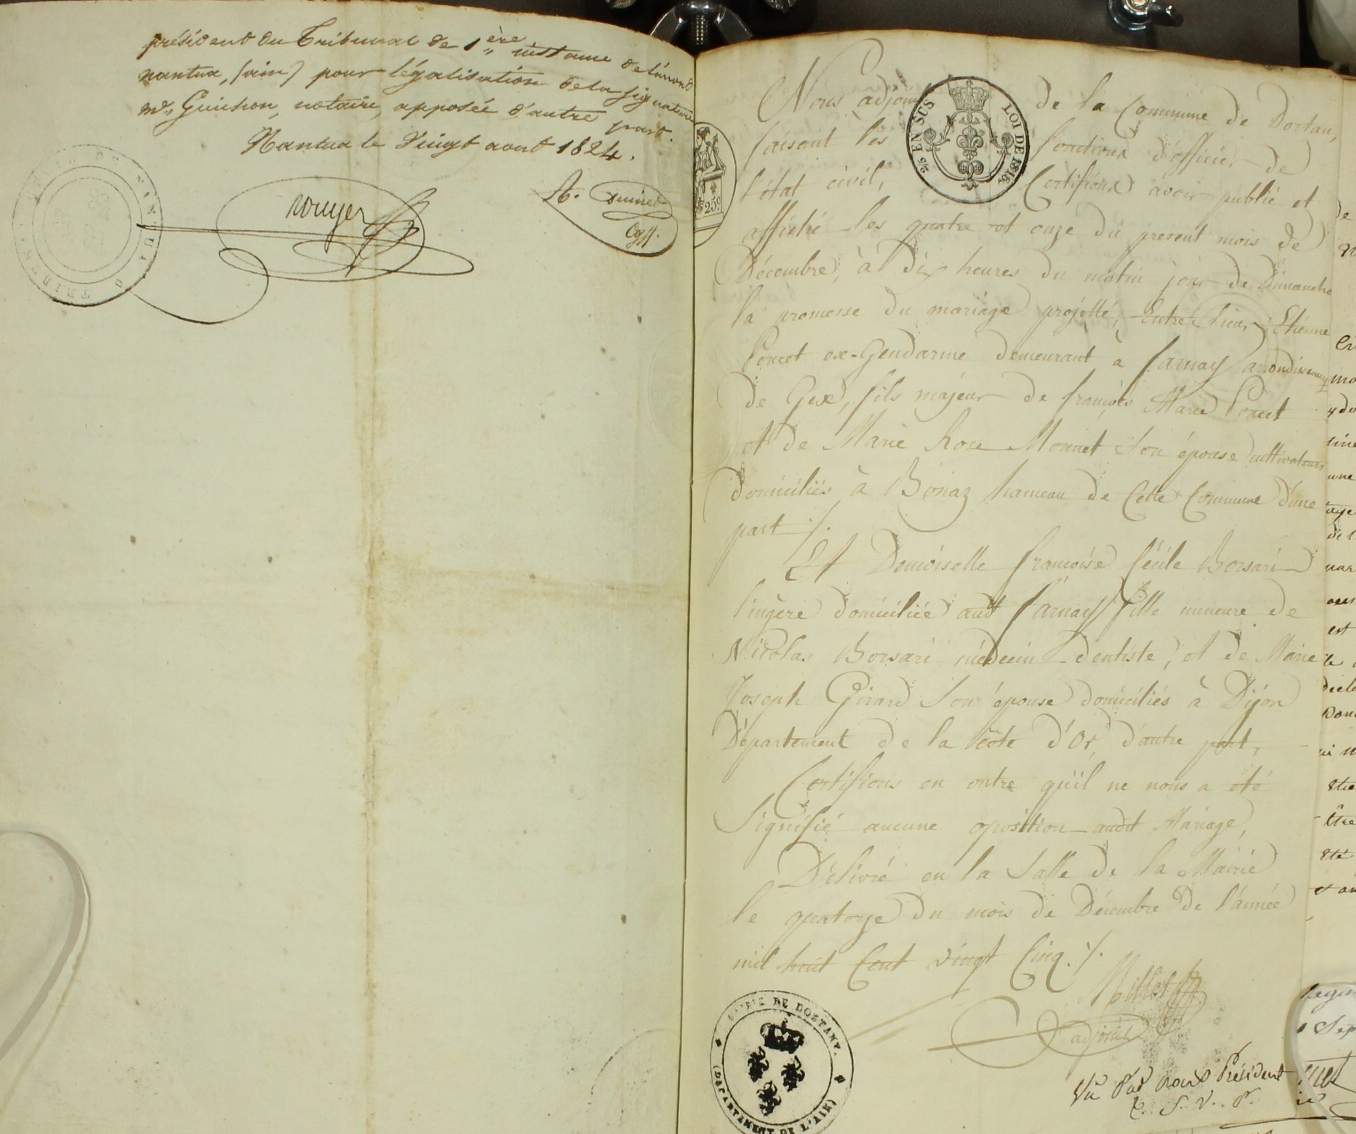 président du Tribunal de 1ère instance de
nantua, (ain) pour légalisation de la signature
me Guichon, notaire, apposée d'autre part.
Nantua le vingt aout 1824.
rouyer
25c
2/8 EN SUS
LOI DE 1816.
Nous adjoint de la Commune de Dortan,
faisant les fonctions d'officier de
l'état civil, Certifions avoir publié et
affiché les quatre et onze du present mois de
Décembre, à dix heures du matin jour de Dimanche
la promesse du mariage projetté, Entre Etienne
Poncet ex-Gendarme demeurant à farnay
de Gex, fils majeur de françois Marie Poncet
et de Marie Rose Monnet son épouse cultivateurs
domiciliés à Bonaz hameau de Cette Commune d'une
part ./.
Et Demoiselle francoise Cécile Borsari
lingère domiciliée audt farnay fille mineure de
Nicolas Borsari médecin-dentiste, et de Marie
Joseph Girard son épouse domiciliés à Dijon
Département de la Côte d'Or, d'autre part,
Certifions en outre qu'il ne nous a été
Signifié aucune oposition audit Mariage,
Délivré en la Salle de la Mairie
le quatorze du mois de Décembre de l'année
mil huit Cent vingt Cinq. ./.
adjoint
MAIRIE DE DORTANT.
(DÉPARTAMENT DE L'AIN)
Vu Par nous Président
T. S. V. P.